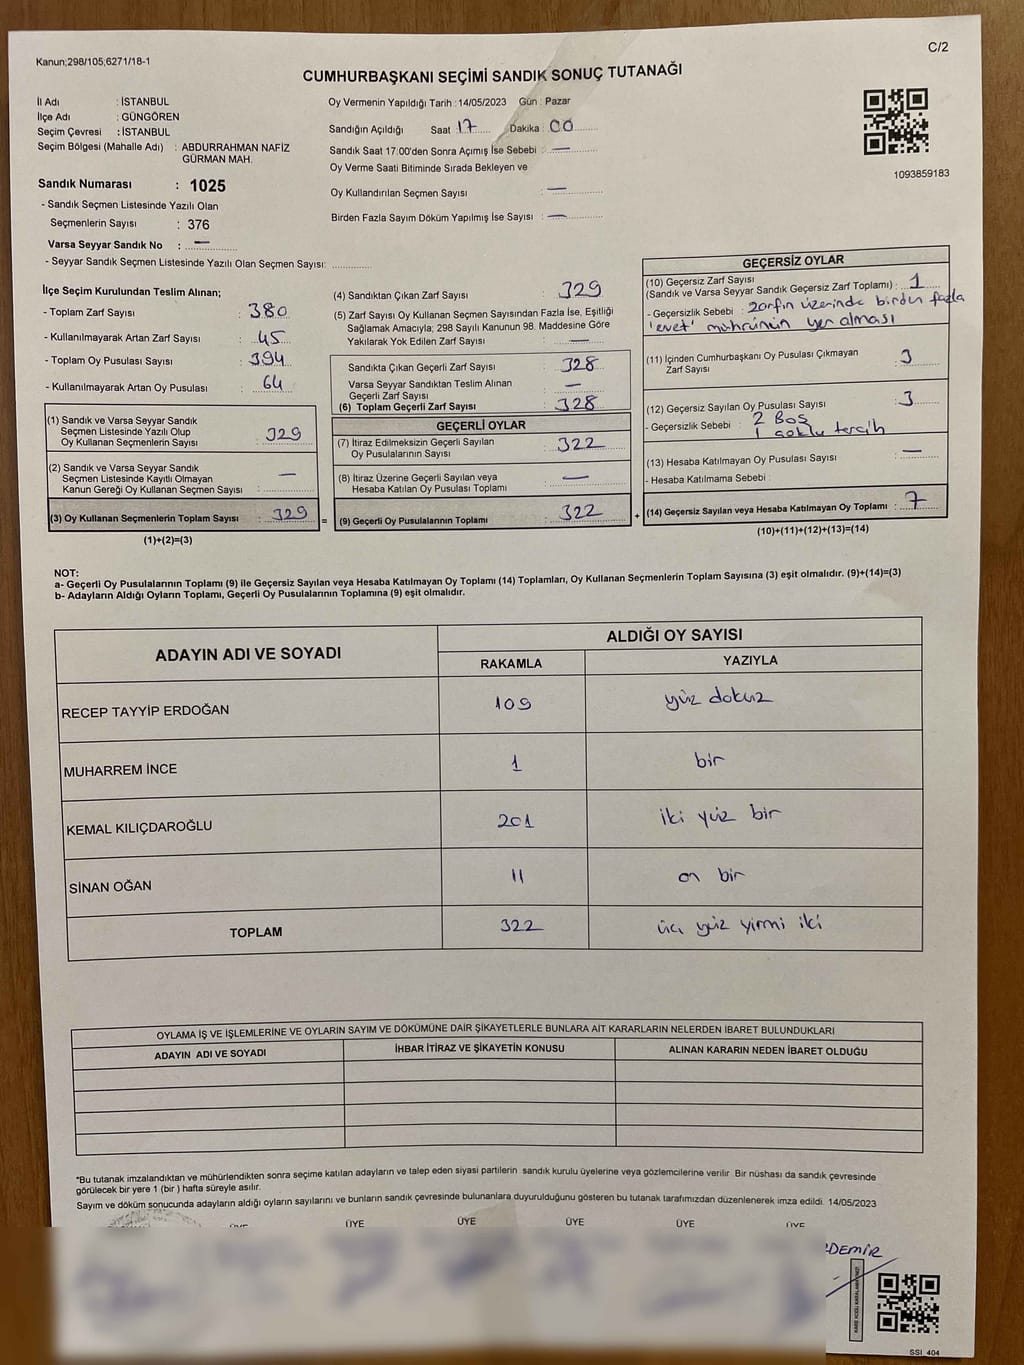 Kanun;298/105;6271/18-1
C/2
CUMHURBAŞKANI SEÇİMİ SANDIK SONUÇ TUTANAĞI
İl Adı : İSTANBUL
İlçe Adı : GÜNGÖREN
Seçim Çevresi : İSTANBUL
Seçim Bölgesi (Mahalle Adı) : ABDURRAHMAN NAFİZ
GÜRMAN MAH.
Sandık Numarası : 1025
- Sandık Seçmen Listesinde Yazılı Olan
Seçmenlerin Sayısı : 376
Varsa Seyyar Sandık No : —
- Seyyar Sandık Seçmen Listesinde Yazılı Olan Seçmen Sayısı:
Oy Vermenin Yapıldığı Tarih : 14/05/2023 Gün : Pazar
Sandığın Açıldığı Saat 17 Dakika : 00
Sandık Saat 17:00'den Sonra Açımış İse Sebebi : —
Oy Verme Saati Bitiminde Sırada Bekleyen ve
Oy Kullandırılan Seçmen Sayısı : —
Birden Fazla Sayım Döküm Yapılmış İse Sayısı : —
1093859183
İlçe Seçim Kurulundan Teslim Alınan;
- Toplam Zarf Sayısı : 380
- Kullanılmayarak Artan Zarf Sayısı : 45
- Toplam Oy Pusulası Sayısı : 394
- Kullanılmayarak Artan Oy Pusulası : 64
(1) Sandık ve Varsa Seyyar Sandık
Seçmen Listesinde Yazılı Olup
Oy Kullanan Seçmenlerin Sayısı : 329
(2) Sandık ve Varsa Seyyar Sandık
Seçmen Listesinde Kayıtlı Olmayan
Kanun Gereği Oy Kullanan Seçmen Sayısı : —
(3) Oy Kullanan Seçmenlerin Toplam Sayısı : 329
(1)+(2)=(3)
=
(4) Sandıktan Çıkan Zarf Sayısı : 329
(5) Zarf Sayısı Oy Kullanan Seçmen Sayısından Fazla İse, Eşitliği
Sağlamak Amacıyla; 298 Sayılı Kanunun 98. Maddesine Göre
Yakılarak Yok Edilen Zarf Sayısı : —
Sandıkta Çıkan Geçerli Zarf Sayısı : 328
Varsa Seyyar Sandıktan Teslim Alınan
Geçerli Zarf Sayısı : —
(6) Toplam Geçerli Zarf Sayısı : 328
GEÇERLİ OYLAR
(7) İtiraz Edilmeksizin Geçerli Sayılan
Oy Pusulalarının Sayısı : 322
(8) İtiraz Üzerine Geçerli Sayılan veya
Hesaba Katılan Oy Pusulası Toplamı : —
(9) Geçerli Oy Pusulalarının Toplamı : 322
+
GEÇERSİZ OYLAR
(10) Geçersiz Zarf Sayısı
(Sandık ve Varsa Seyyar Sandık Geçersiz Zarf Toplamı) : 1
- Geçersizlik Sebebi : zarfın üzerinde birden fazla
'evet' mührünün yer alması
(11) İçinden Cumhurbaşkanı Oy Pusulası Çıkmayan
Zarf Sayısı : 3
(12) Geçersiz Sayılan Oy Pusulası Sayısı : 3
- Geçersizlik Sebebi : 2 Boş
1 çoklu tercih
(13) Hesaba Katılmayan Oy Pusulası Sayısı : —
- Hesaba Katılmama Sebebi :
(14) Geçersiz Sayılan veya Hesaba Katılmayan Oy Toplamı : 7
(10)+(11)+(12)+(13)=(14)
NOT:
a- Geçerli Oy Pusulalarının Toplamı (9) ile Geçersiz Sayılan veya Hesaba Katılmayan Oy Toplamı (14) Toplamları, Oy Kullanan Seçmenlerin Toplam Sayısına (3) eşit olmalıdır. (9)+(14)=(3)
b- Adayların Aldığı Oyların Toplamı, Geçerli Oy Pusulalarının Toplamına (9) eşit olmalıdır.
ADAYIN ADI VE SOYADI ALDIĞI OY SAYISI
RAKAMLA YAZIYLA
RECEP TAYYİP ERDOĞAN 109 yüz dokuz
MUHARREM İNCE 1 bir
KEMAL KILIÇDAROĞLU 201 iki yüz bir
SİNAN OĞAN 11 on bir
TOPLAM 322 üç yüz yirmi iki
OYLAMA İŞ VE İŞLEMLERİNE VE OYLARIN SAYIM VE DÖKÜMÜNE DAİR ŞİKAYETLERLE BUNLARA AİT KARARLARIN NELERDEN İBARET BULUNDUKLARI
ADAYIN ADI VE SOYADI İHBAR İTİRAZ VE ŞİKAYETİN KONUSU ALINAN KARARIN NEDEN İBARET OLDUĞU
*Bu tutanak imzalandıktan ve mühürlendikten sonra seçime katılan adayların ve talep eden siyasi partilerin sandık kurulu üyelerine veya gözlemcilerine verilir Bir nüshası da sandık çevresinde
görülecek bir yere 1 (bir) hafta süreyle asılır.
Sayım ve döküm sonucunda adayların aldığı oyların sayılarını ve bunların sandık çevresinde bulunanlara duyurulduğunu gösteren bu tutanak tarafımızdan düzenlenerek imza edildi. 14/05/2023
ÜYE ÜYE ÜYE ÜYE ÜYE ÜYE
DEMİR
SSI_404